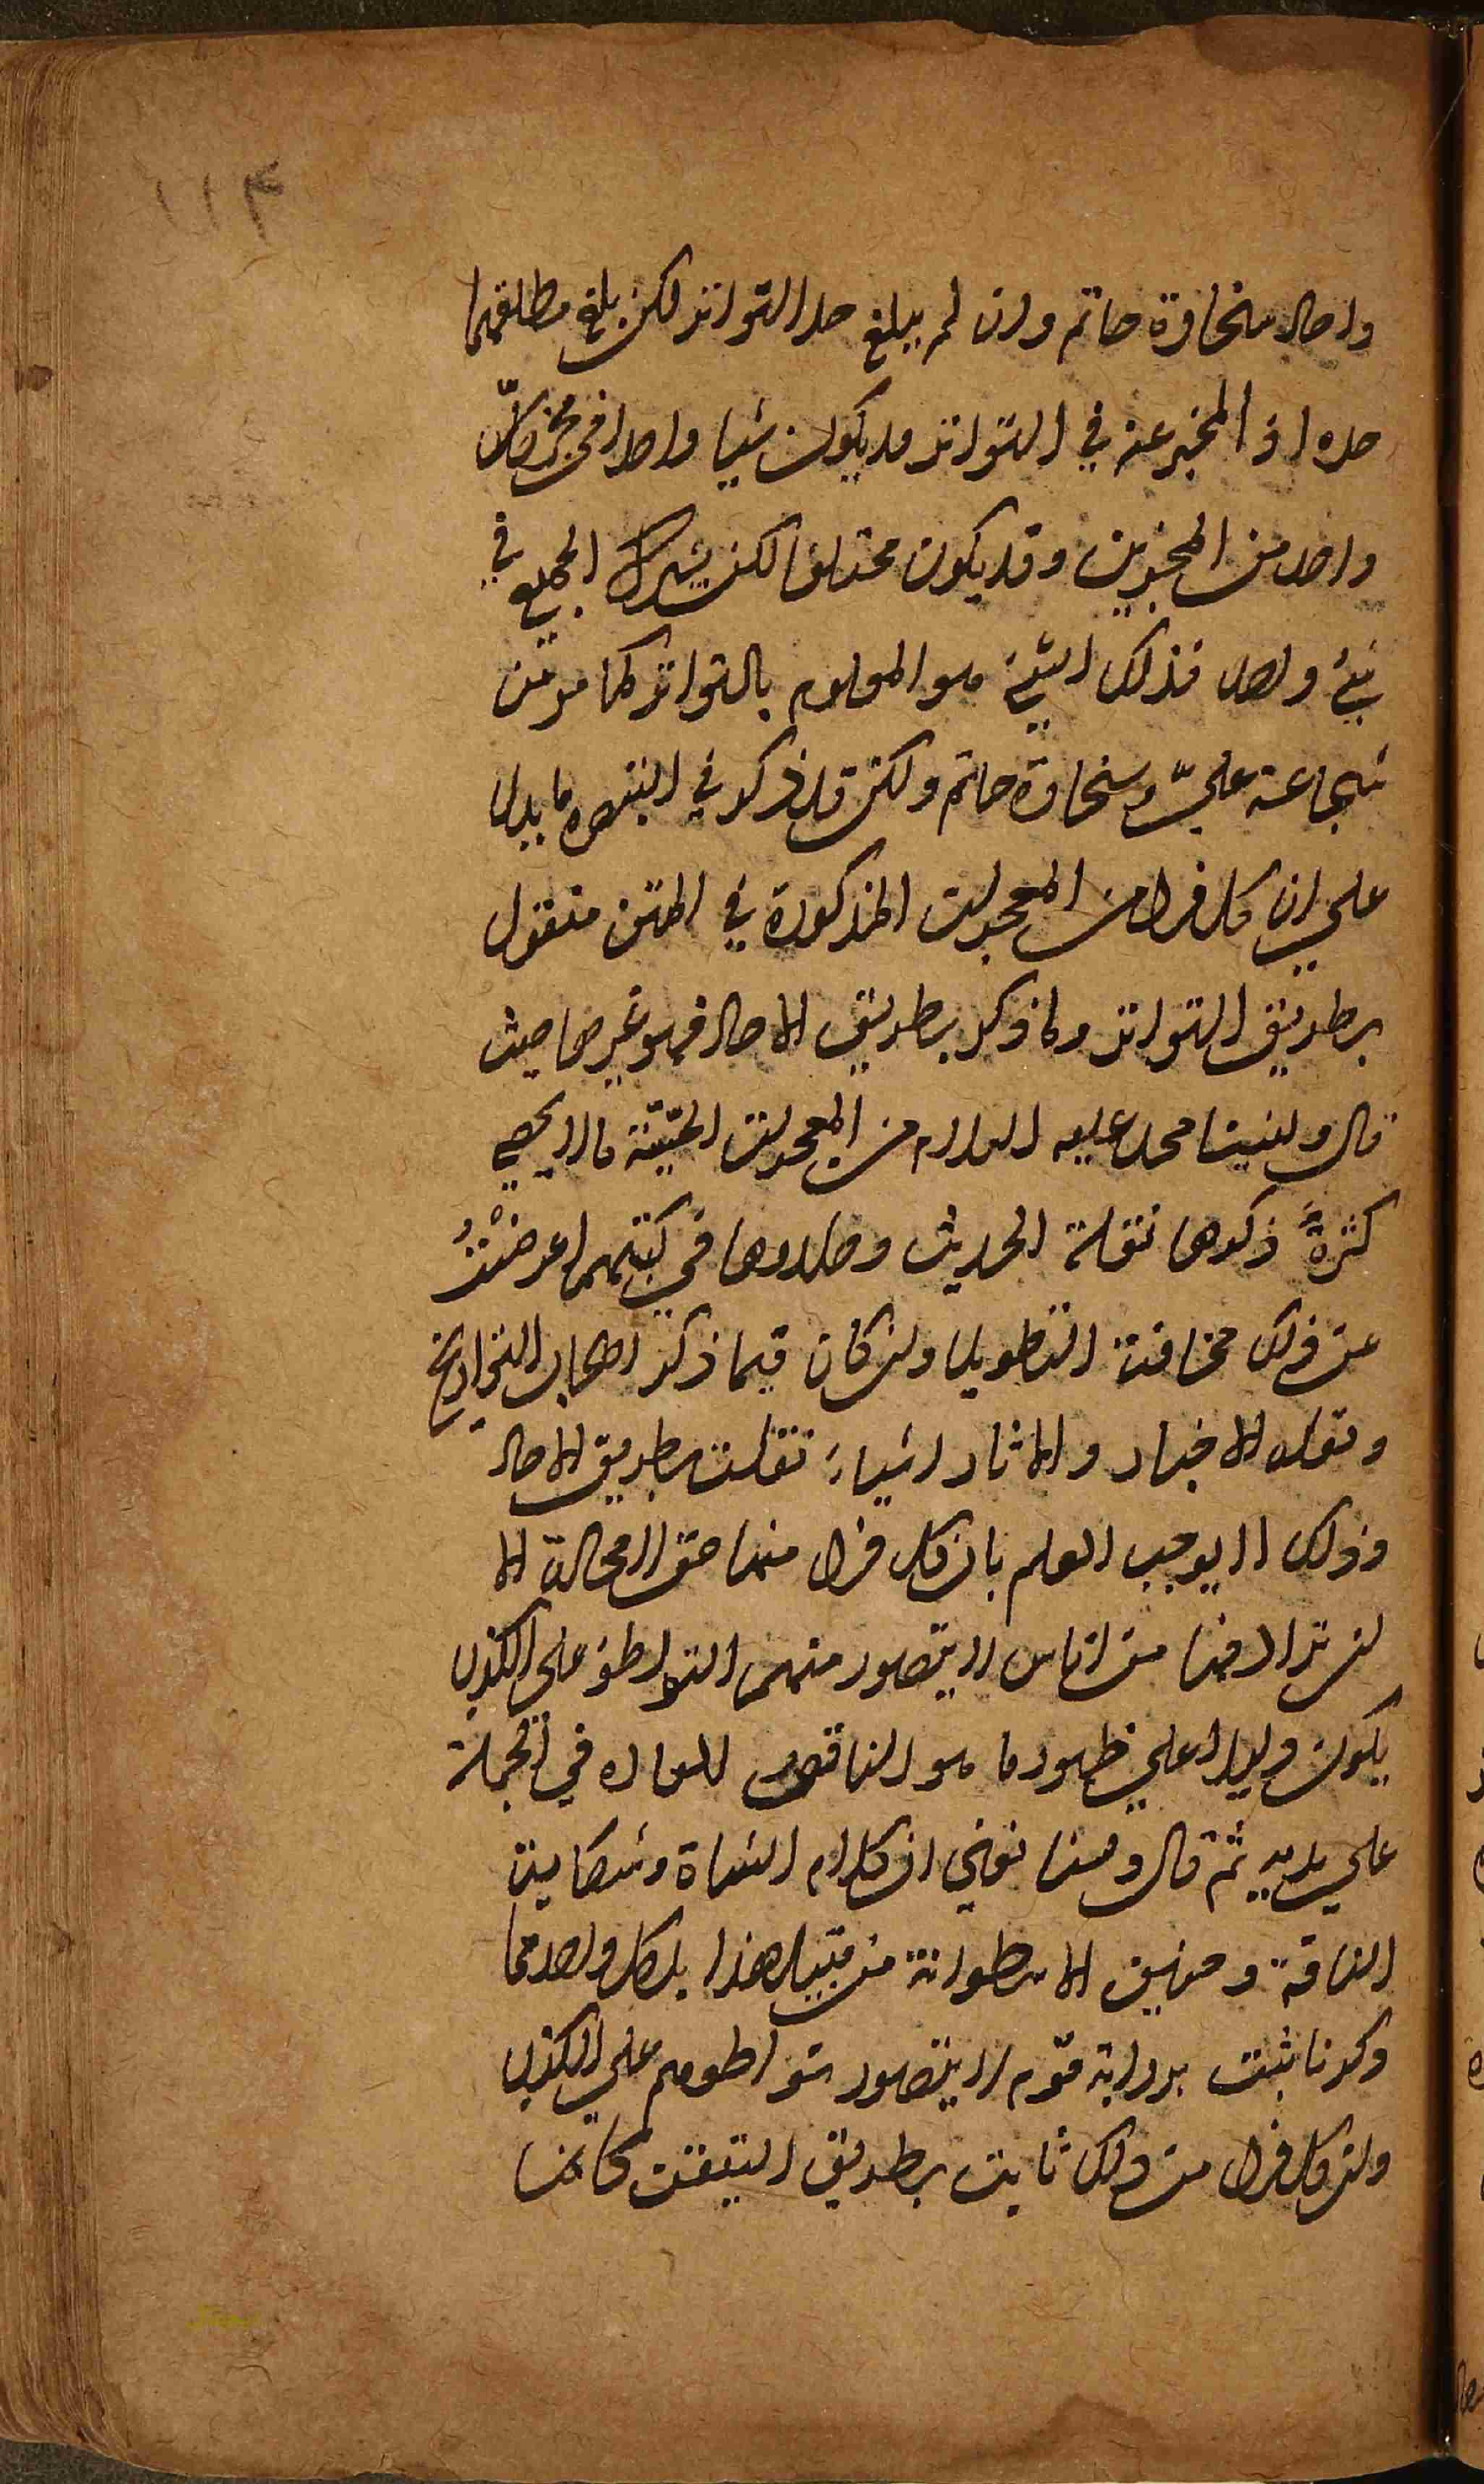 ١١٤
واحاد سخاوة حاتم وان لم يبلغ حد التواتر لكن بلغ مطلقهما
حده اذ المخبر عنه في التواتر قد يكون شيا واحدا في خبر كلّ
واحد من المخبرين وقد يكون مختلفا لكن يشترك الجميع في
شئ واحد فذلك الشئ هو المعلوم بالتواتر كما مر من
شجاعة عليّ وسخاوة حاتم ولكن قد ذكر في التبصرة ما يدل
علي ان كل فرد من المعجزات المذكورة في المتن منقول
بطريق التواتر وما ذكر بطريق الاحاد فهو غيرها حيث
قال ولنبينا محمد عليه السلام من المعجزات الحسّيّة ما لا يحصي
كثرةً ذكرها نقلة الحديث وخلدوها في كتبهم اعرضْتُ
عن ذلك مخافة التطويل وان كان فيما ذكر اصحاب التواريخ
ونقلة الاخبار والاثار اشياء نقلت بطريق الاحاد
وذلك لا يوجب العلم بان كل فرد منها حق لا محالة الا
ان ترادفها من اناس لا يتصور منهم التواطؤ علي الكذب
يكون دليلا علي ظهور ما هو الناقض للعادة في الجملة
علي يديه ثم قال ولسنا نعني ان كلام الشاة وشكاية
الناقة وحنين الاسطوانة من قبيل هذا بل كل واحد مما
ذكرنا ثبت برواية قوم لا يتصور تواطؤهم علي الكذب
وان كل فرد من ذلك ثابت بطريق التيقن كانها